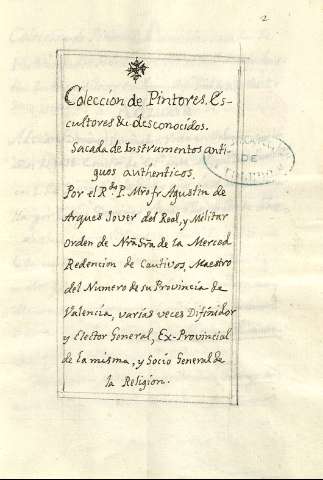 2
Coleccion de Pintores, Es-
cultores &c desconocidos.
Sacada de Instrumentos anti-
guos authenticos.
Por el R.do P. Mro fr Agustin de
Arques Jover del Real, y Militar
orden de Nra Sra de la Merced
Redencion de Cautivos, Maestro
del Numero de su Provincia de
Valencia, varias veces Difinidor
y Elector General, Ex-Provincial
de la misma, y Socio General de
la Religion.
DE